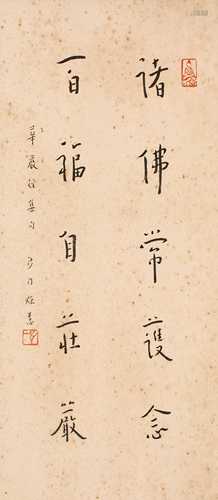 諸佛常護念
百福自莊嚴
華嚴經集句 沙門 書